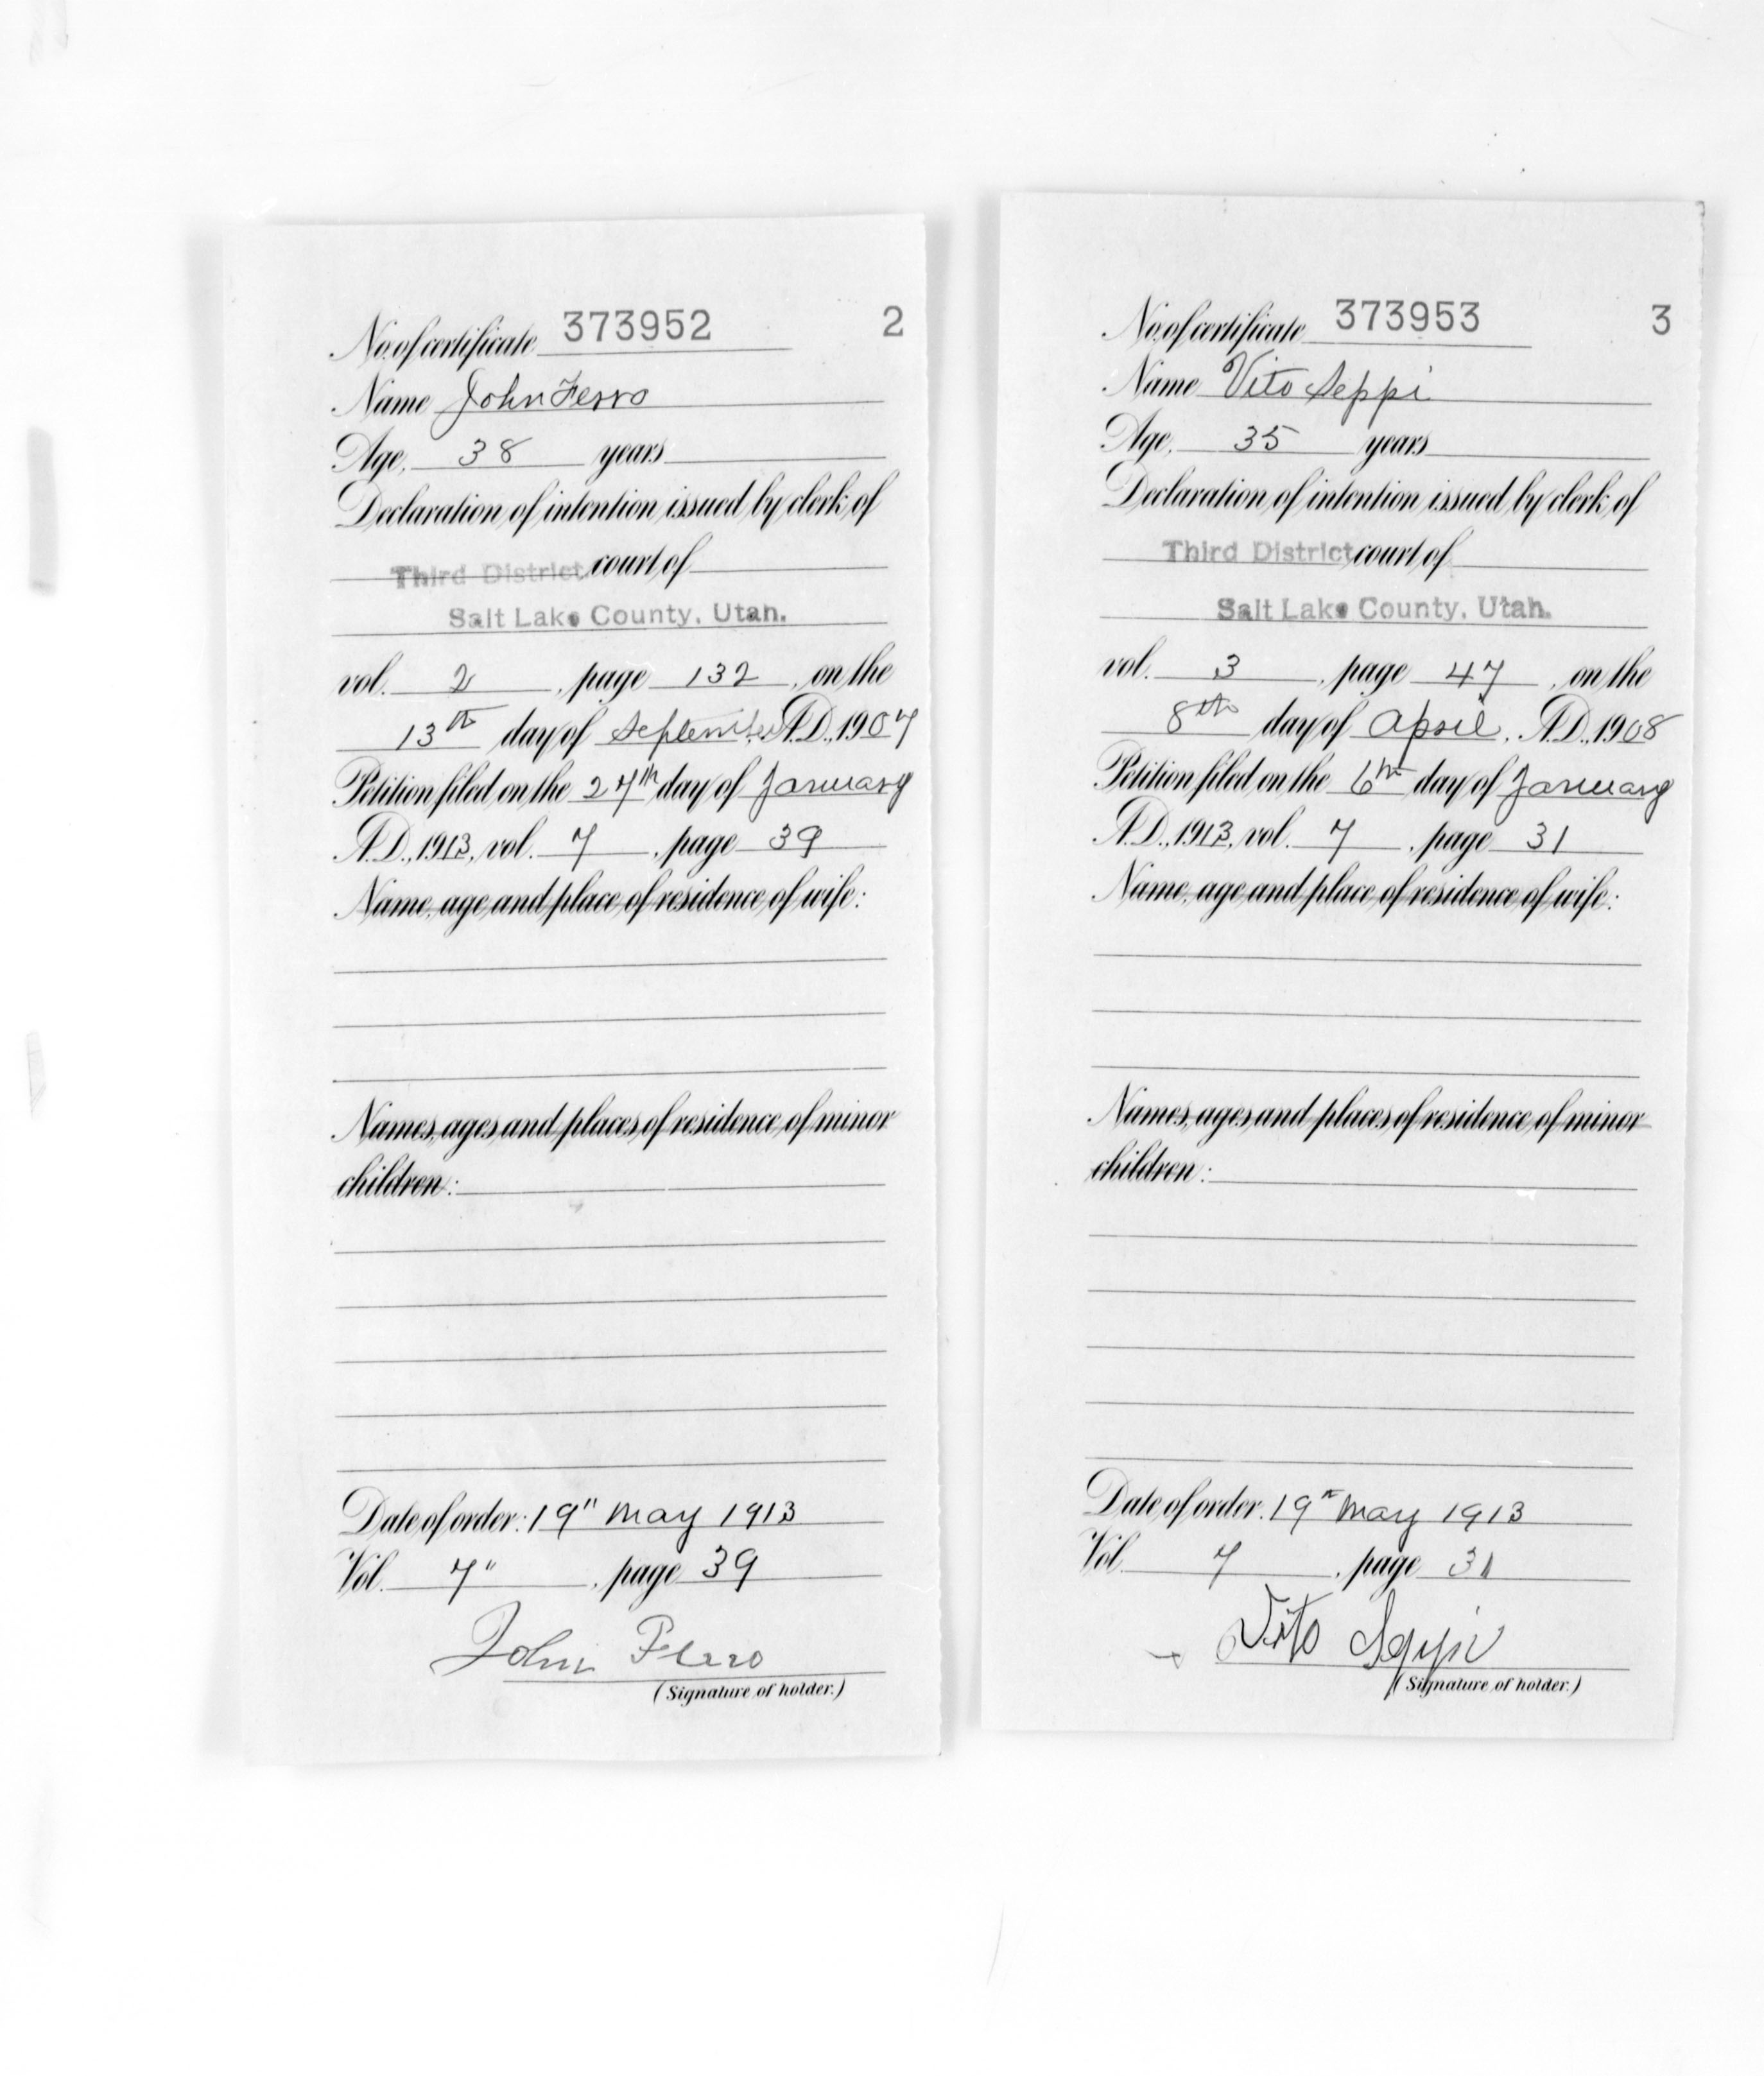 No. of certificate 373952 2
Name John Ferro
Age, 38 years
Declaration of intention issued by clerk of
Third District court of
Salt Lake County, Utah.
vol. 2, page 132, on the
13th day of September, A.D., 1907
Petition filed on the 27th day of January
A.D., 1913, vol. 7, page 39
Name, age and place of residence of wife:
Names, ages and places of residence of minor
children:
Date of order: 19" May 1913
Vol. 7", page 39
John Ferro
(Signature of holder.)
No. of certificate 373953 3
Name Vito Seppi
Age, 35 years
Declaration of intention issued by clerk of
Third District court of
Salt Lake County, Utah.
vol. 3, page 47, on the
8th day of April, A.D., 1908
Petition filed on the 6th day of January
A.D., 1913, vol. 7, page 31
Name, age and place of residence of wife:
Names, ages and places of residence of minor
children:
Date of order: 19th May 1913
Vol. 7, page 31
Vito Seppi
(Signature of holder.)